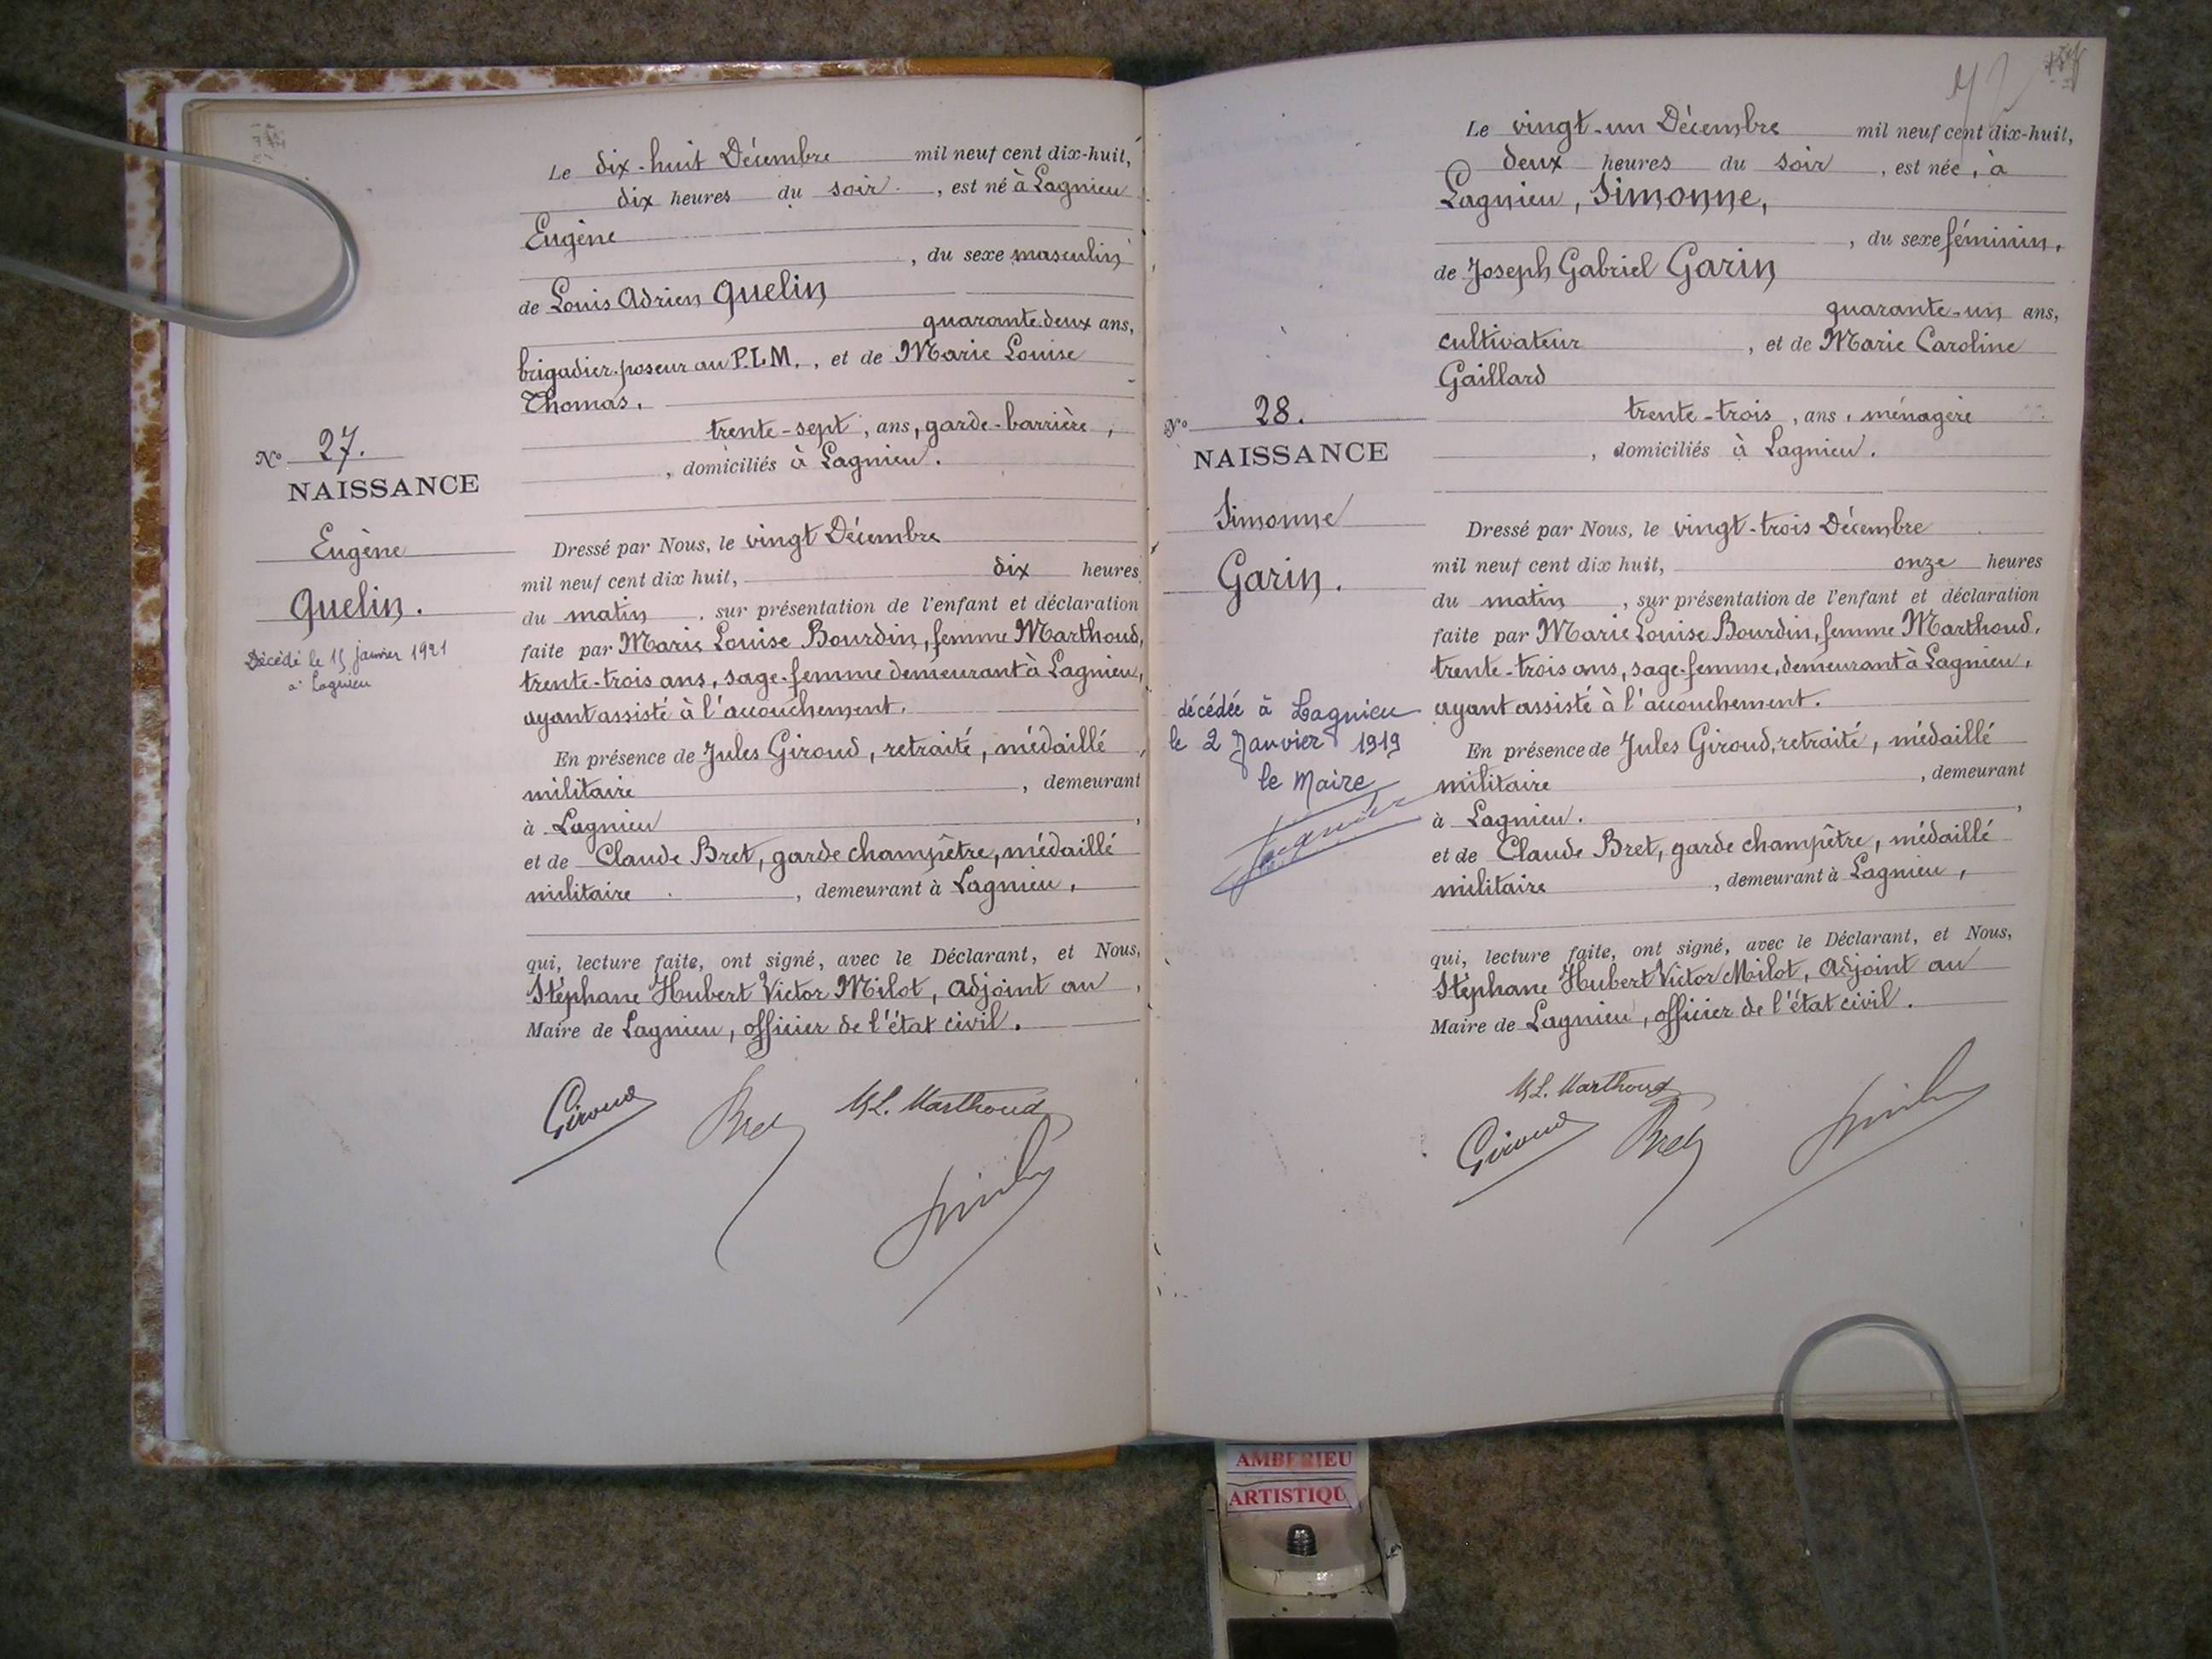 Le dix-huit Décembre mil neuf cent dix-huit,
dix heures du soir, est né à Lagnieu
Eugène
, du sexe masculin
de Louis Adrien Quelin
quarante-deux ans,
brigadier-poseur au P.L.M., et de Marie Louise
Thomas.
trente-sept, ans, garde-barrière,
, domiciliés à Lagnieu.
No 27.
NAISSANCE
Eugène
Quelin.
Décédé le 15 janvier 1921
à Lagnieu
Dressé par Nous, le vingt Décembre
mil neuf cent dix huit, dix heures
du matin, sur présentation de l'enfant et déclaration
faite par Marie Louise Bourdin, femme Marthoud,
trente-trois ans, sage-femme demeurant à Lagnieu,
ayant assisté à l'accouchement.
En présence de Jules Giroud, retraité, médaillé
militaire, demeurant
à Lagnieu,
et de Claude Bret, garde champêtre, médaillé
militaire, demeurant à Lagnieu,
qui, lecture faite, ont signé, avec le Déclarant, et Nous,
Stéphane Hubert Victor Milot, Adjoint au
Maire de Lagnieu, officier de l'état civil.
Giroud Bret M.L. Marthoud
Le vingt-un Décembre mil neuf cent dix-huit,
deux heures du soir, est née, à
Lagnieu, Simonne,
, du sexe féminin,
de Joseph Gabriel Garin
quarante-un ans,
cultivateur, et de Marie Caroline
Gaillard
trente-trois, ans, ménagère
, domiciliés à Lagnieu.
No 28.
NAISSANCE
Simonne
Garin.
décédée à Lagnieu
le 2 Janvier 1919
le Maire
Dressé par Nous, le vingt-trois Décembre
mil neuf cent dix huit, onze heures
du matin, sur présentation de l'enfant et déclaration
faite par Marie Louise Bourdin, femme Marthoud,
trente-trois ans, sage-femme, demeurant à Lagnieu,
ayant assisté à l'accouchement.
En présence de Jules Giroud, retraité, médaillé
militaire, demeurant
à Lagnieu.
et de Claude Bret, garde champêtre, médaillé
militaire, demeurant à Lagnieu,
qui, lecture faite, ont signé, avec le Déclarant, et Nous,
Stéphane Hubert Victor Milot, Adjoint au
Maire de Lagnieu, officier de l'état civil.
M.L. Marthoud
Giroud Bret
AMBERIEU
ARTISTIQU